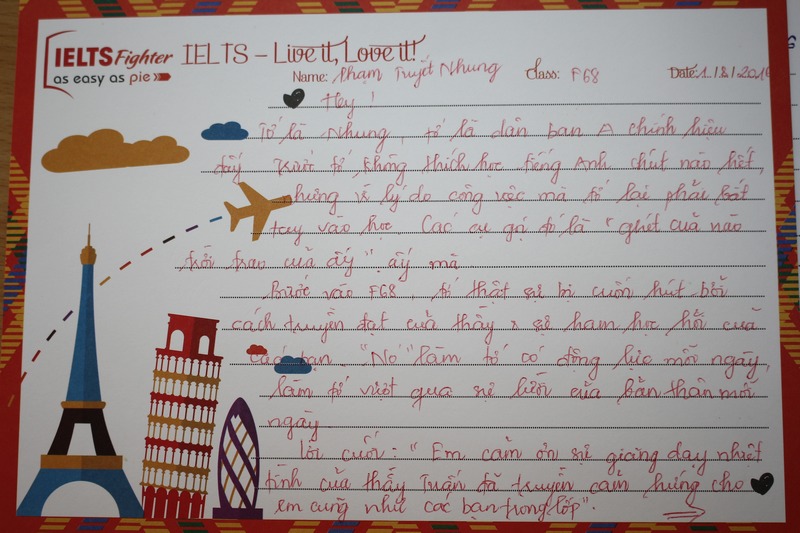 IELTS Fighter
as easy as pie
IELTS - Live it, Love it!
Name: Phạm Tuyết Nhung Class: F68 Date: 1/8/2016
Hey!
Tớ là Nhung, tớ là dân ban A chính hiệu
đấy. Trước tớ không thích học tiếng Anh chút nào hết,
nhưng vì lý do công việc mà tớ lại phải bắt
tay vào học. Các cụ gọi đó là "ghét cuả nào
trời trao của ấy" ấy mà
Bước vào F68, tớ thật sự bị cuốn hút bởi
cách truyền đạt của thầy x sự ham học hỏi của
các bạn. "Nó" làm tớ có động lực mỗi ngày,
làm tớ vượt qua sự lười của bản thân mỗi
ngày.
Lời cuối: "Em cảm ơn sự giảng dạy nhiệt
tình của thầy Tuấn đã truyền cảm hứng cho
em cũng như các bạn trong lớp".